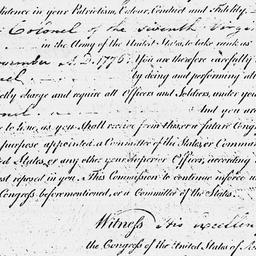 fidence in your Patriotism, Valour, Conduct and Fidelity,
Colonel of the Seventh Virgi
in the Army of the United States, to take rank as
ovember A.D. 1776. You are therefore carefully
by doing and performing all
ctly charge and require all Officers and Soldiers, under you
And you are
e to time, as you shall receive from this, or a future Cong
purpose appointed, a Committee of the States, or Comman
ed States, or any other your Superior Officer, according
ust reposed in you. This Commission to continue in force u
Congress before mentioned, or a Committee of the States.
Witness His Excellen
the Congress of the United States of